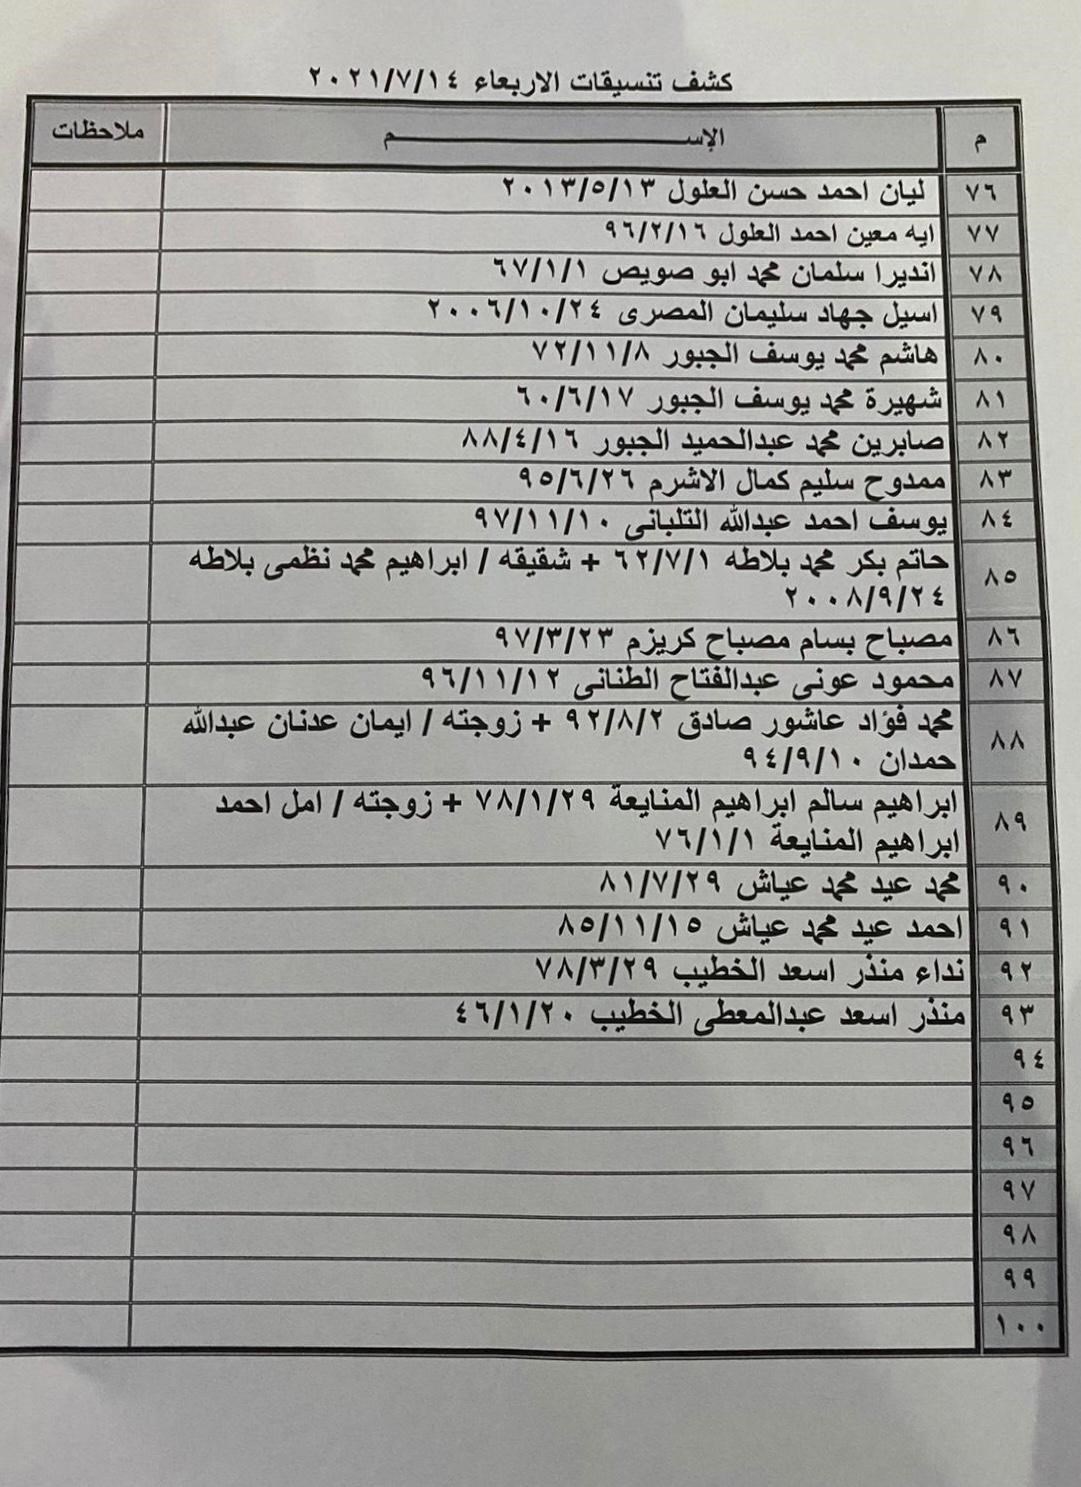 كشف تنسيقات الاربعاء ٢٠٢١/٧/١٤
م الإســــــــــــــــــــــــــم ملاحظات
٧٦ ليان احمد حسن العلول ٢٠١٣/٥/١٣
٧٧ ايه معين احمد العلول ٩٦/٢/١٦
٧٨ انديرا سلمان محمد ابو صويص ٦٧/١/١
٧٩ اسيل جهاد سليمان المصرى ٢٠٠٦/١٠/٢٤
٨٠ هاشم محمد يوسف الجبور ٧٢/١١/٨
٨١ شهيرة محمد يوسف الجبور ٦٠/٦/١٧
٨٢ صابرين محمد عبدالحميد الجبور ٨٨/٤/١٦
٨٣ ممدوح سليم كمال الاشرم ٩٥/٦/٢٦
٨٤ يوسف احمد عبدالله التلبانى ٩٧/١١/١٠
٨٥ حاتم بكر محمد بلاطه ٦٢/٧/١ + شقيقه / ابراهيم محمد نظمى بلاطه
٢٠٠٨/٩/٢٤
٨٦ مصباح بسام مصباح كريزم ٩٧/٣/٢٣
٨٧ محمود عونى عبدالفتاح الطنانى ٩٦/١١/١٢
٨٨ محمد فؤاد عاشور صادق ٩٢/٨/٢ + زوجته / ايمان عدنان عبدالله
حمدان ٩٤/٩/١٠
٨٩ ابراهيم سالم ابراهيم المنايعة ٧٨/١/٢٩ + زوجته / امل احمد
ابراهيم المنايعة ٧٦/١/١
٩٠ محمد عيد محمد عياش ٨١/٧/٢٩
٩١ احمد عيد محمد عياش ٨٥/١١/١٥
٩٢ نداء منذر اسعد الخطيب ٧٨/٣/٢٩
٩٣ منذر اسعد عبدالمعطى الخطيب ٤٦/١/٢٠
٩٤
٩٥
٩٦
٩٧
٩٨
٩٩
١٠٠